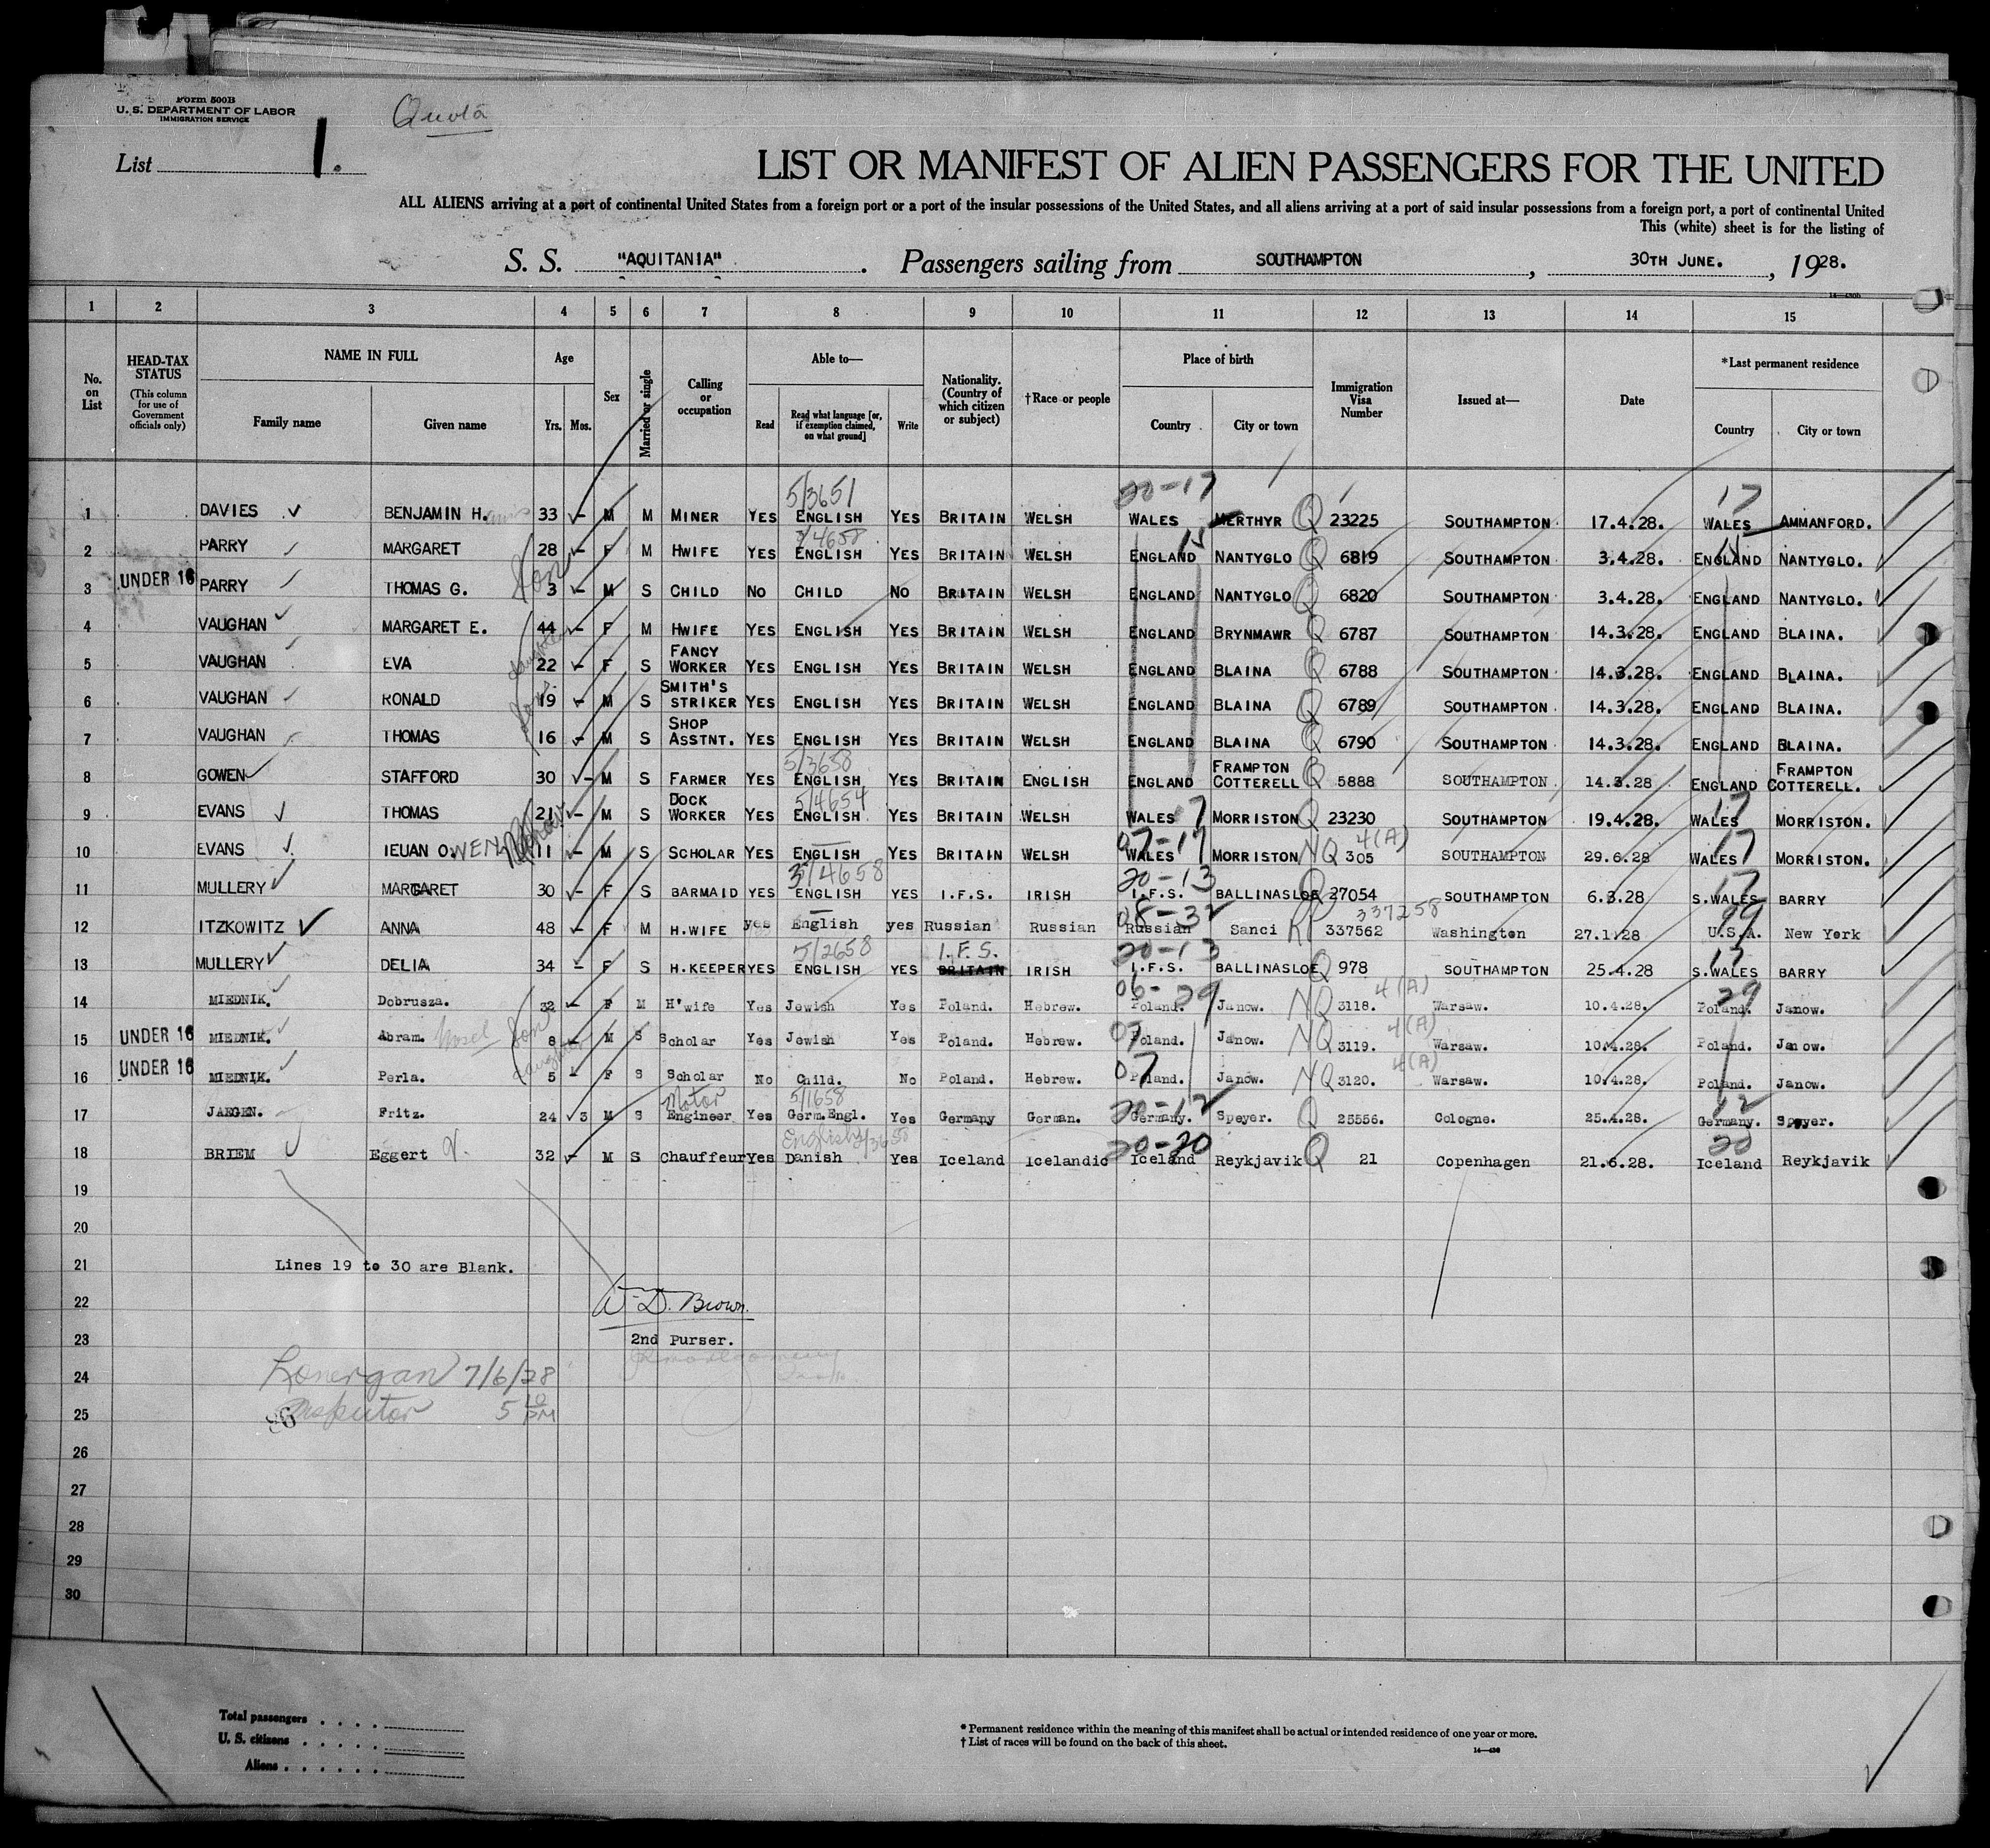 Form 500B
U. S. DEPARTMENT OF LABOR
IMMIGRATION SERVICE
Quota
List 1.
LIST OR MANIFEST OF ALIEN PASSENGERS FOR THE UNITED
ALL ALIENS arriving at a port of continental United States from a foreign port or a port of the insular possessions of the United States, and all aliens arriving at a port of said insular possessions from a foreign port, a port of continental United
This (white) sheet is for the listing of
S. S. "AQUITANIA". Passengers sailing from SOUTHAMPTON, 30TH JUNE., 1928.
1 2 3 4 5 6 7 8 9 10 11 12 13 14 15
No. on List
HEAD-TAX STATUS (This column for use of Government officials only)
NAME IN FULL
Family name Given name
Age
Yrs. Mos.
Sex
Married or single
Calling or occupation
Able to—
Read Read what language [or, if exemption claimed, on what ground] Write
Nationality. (Country of which citizen or subject)
†Race or people
Place of birth
Country City or town
Immigration Visa Number
Issued at—
Date
*Last permanent residence
Country City or town
5/3651 20-17 17
1 DAVIES BENJAMIN H. 33 - M M MINER YES ENGLISH YES BRITAIN WELSH WALES MERTHYR Q 23225 SOUTHAMPTON 17.4.28. WALES AMMANFORD.
2 PARRY MARGARET 28 - F M HWIFE YES ENGLISH YES BRITAIN WELSH ENGLAND NANTYGLO Q 6819 SOUTHAMPTON 3.4.28. ENGLAND NANTYGLO.
3 UNDER 16 PARRY THOMAS G. son 3 - M S CHILD NO CHILD NO BRITAIN WELSH ENGLAND NANTYGLO Q 6820 SOUTHAMPTON 3.4.28. ENGLAND NANTYGLO.
4 VAUGHAN MARGARET E. 44 - F M HWIFE YES ENGLISH YES BRITAIN WELSH ENGLAND BRYNMAWR Q 6787 SOUTHAMPTON 14.3.28. ENGLAND BLAINA.
5 VAUGHAN EVA daughter 22 - F S FANCY WORKER YES ENGLISH YES BRITAIN WELSH ENGLAND BLAINA Q 6788 SOUTHAMPTON 14.3.28. ENGLAND BLAINA.
6 VAUGHAN RONALD sons 19 - M S SMITH'S STRIKER YES ENGLISH YES BRITAIN WELSH ENGLAND BLAINA Q 6789 SOUTHAMPTON 14.3.28. ENGLAND BLAINA.
7 VAUGHAN THOMAS 16 - M S SHOP ASSTNT. YES ENGLISH YES BRITAIN WELSH ENGLAND BLAINA Q 6790 SOUTHAMPTON 14.3.28. ENGLAND BLAINA.
5/3658
8 GOWEN STAFFORD 30 - M S FARMER YES ENGLISH YES BRITAIN ENGLISH ENGLAND FRAMPTON COTTERELL Q 5888 SOUTHAMPTON 14.3.28 ENGLAND FRAMPTON COTTERELL.
5/4654 17
9 EVANS THOMAS 21 - M S DOCK WORKER YES ENGLISH YES BRITAIN WELSH WALES 7 MORRISTON Q 23230 SOUTHAMPTON 19.4.28. WALES MORRISTON.
07-17 4(A) 17
10 EVANS IEUAN OWEN 11 - M S SCHOLAR YES ENGLISH YES BRITAIN WELSH WALES MORRISTON NQ 305 SOUTHAMPTON 29.6.28 WALES MORRISTON.
3/4658 20-13 17
11 MULLERY MARGARET 30 - F S BARMAID YES ENGLISH YES I.F.S. IRISH I.F.S. BALLINASLOE Q 27054 SOUTHAMPTON 6.3.28 S.WALES BARRY
08-32 337258 29
12 ITZKOWITZ ANNA 48 - F M H.WIFE yes English yes Russian Russian Russian Sanci 337562 Washington 27.1.28 U.S.A. New York
5/2658 I.F.S. 20-13 17
13 MULLERY DELIA 34 - F S H.KEEPER YES ENGLISH YES BRITAIN IRISH I.F.S. BALLINASLOE Q 978 SOUTHAMPTON 25.4.28 S.WALES BARRY
06-29 4(A) 29
14 MIEDNIK. Dobrusza. 32 - F M H'wife Yes Jewish Yes Poland. Hebrew. Poland. Janow. NQ 3118. Warsaw. 10.4.28. Poland. Janow.
07 4(A)
15 UNDER 16 MIEDNIK. Abram. son 8 - M S Scholar Yes Jewish Yes Poland. Hebrew. Poland. Janow. NQ 3119. Warsaw. 10.4.28. Poland. Janow.
07 4(A)
16 UNDER 16 MIEDNIK. Perla. daughter 5 - F S Scholar No Child. No Poland. Hebrew. Poland. Janow. NQ 3120. Warsaw. 10.4.28. Poland. Janow.
Motor 5/1658 20-12 12
17 JAEGEN. Fritz. 24 3 M S Engineer Yes Germ.Engl. Yes Germany German. Germany. Speyer. Q 25556. Cologne. 25.4.28. Germany. Speyer.
English 20-20 20
18 BRIEM Eggert V. 32 - M S Chauffeur Yes Danish Yes Iceland Icelandic Iceland Reykjavik Q 21 Copenhagen 21.6.28. Iceland Reykjavik
19
20
21 Lines 19 to 30 are Blank.
22 W. D. Brown.
23 2nd Purser.
24 Lonergan 7/6/28
25 Inspector 5 10 PM
26
27
28
29
30
Total passengers . . . .
U. S. citizens . . . . .
Aliens . . . . . .
* Permanent residence within the meaning of this manifest shall be actual or intended residence of one year or more.
† List of races will be found on the back of this sheet.